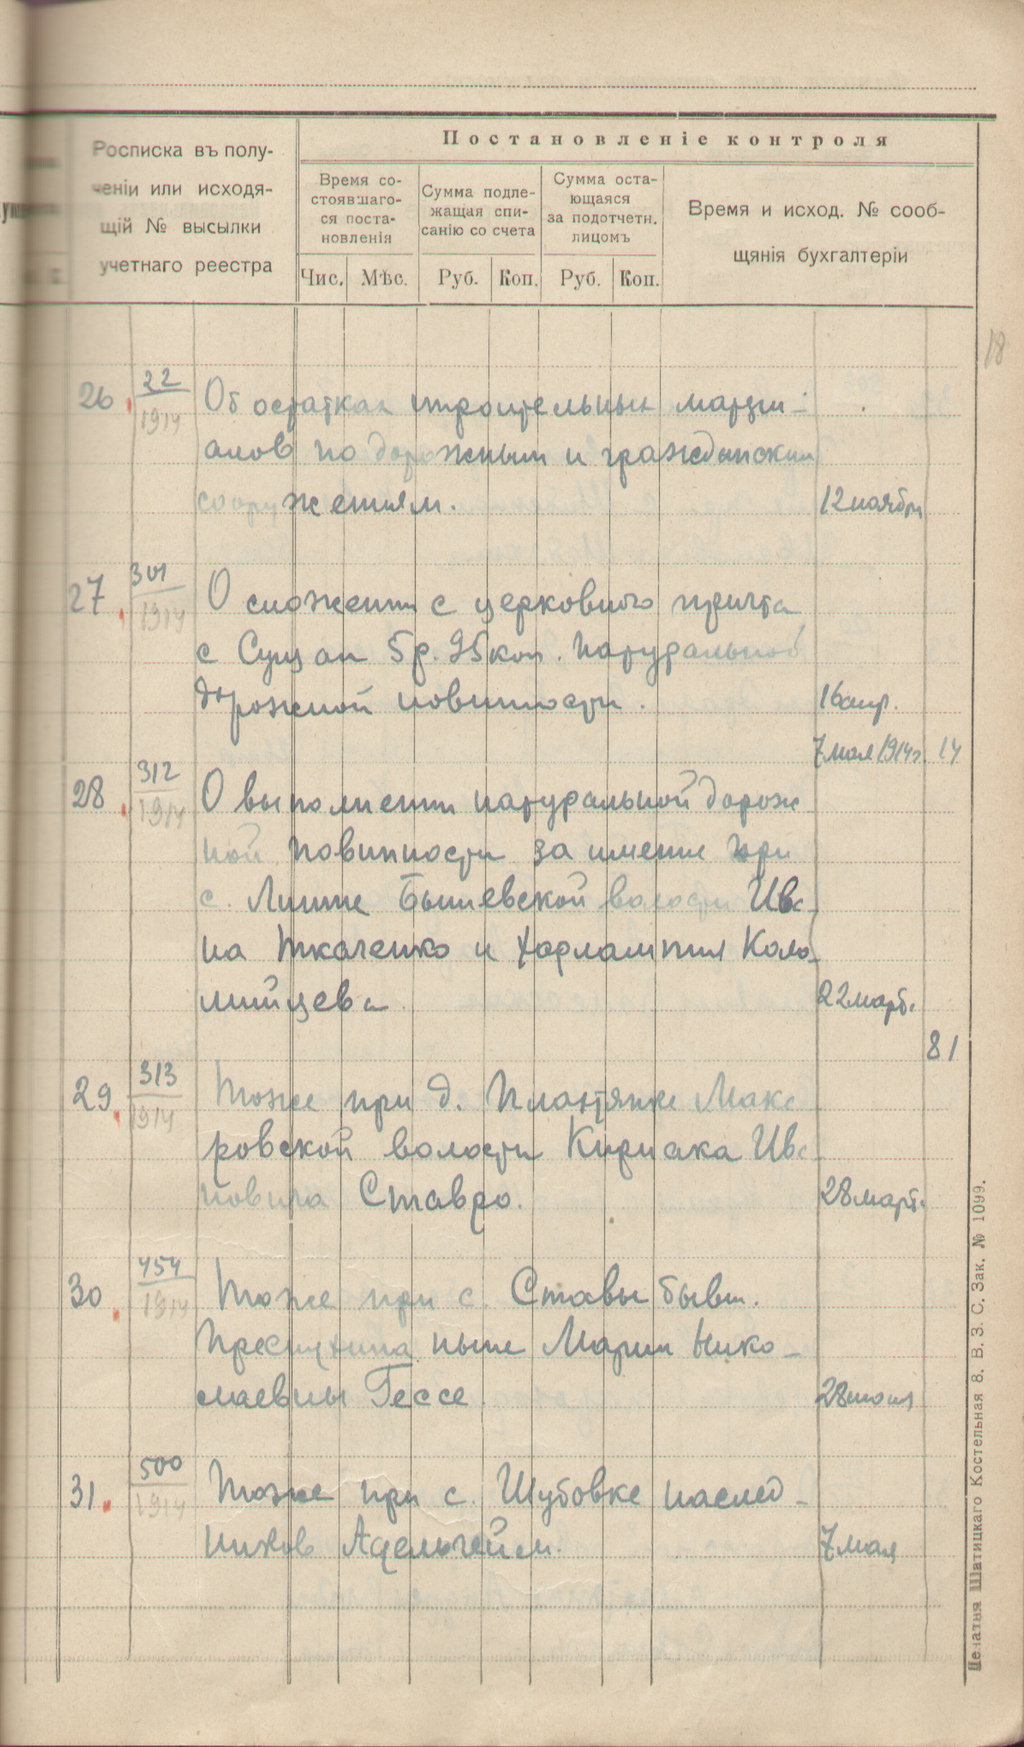 Постановленіе контроля
Росписка въ полу-
ченіи или исходя-
щій № высылки
учетнаго реестра
Время со-
стоявшаго-
ся поста-
новленія
Сумма подле-
жащая спи-
санію со счета
Сумма оста-
ющаяся
за подотчетн.
лицомъ
Время и исход. № сооб-
щянія бухгалтеріи
Чис. Мѣс. Руб. Коп. Руб. Коп.
18
26. 22/1914 Об остатках строительных матери-
алов по дорожным и гражданским
сооружениям. 12 ноября
27. 301/1914 О сложении с церковного причта
с. Сущан 5 р. 95 коп. натуральной
дорожной повинности. 16 апр.
7 мая 1914 г. 14
28. 312/1914 О выполнении натуральной дорож
ной повинности за имение при
с. Липне Бышевской волости Ива
на Ткаченко и Харлампия Коло-
мийцева. 22 март.
81
29. 313/1914 Тоже при д. Плахтянке Мака
ровской волости Кириака Ива-
новича Ставро. 28 март.
30. 454/1914 Тоже при с. Ставы бывш.
ныне Марии Нико-
лаевны Гессе. 28 июня
31. 500/1914 Тоже при с. Шубовке наслед-
ников Адельгейм. 7 мая
Печатня Шатицкаго Костельная 8. В. З. С. Зак. № 1099.